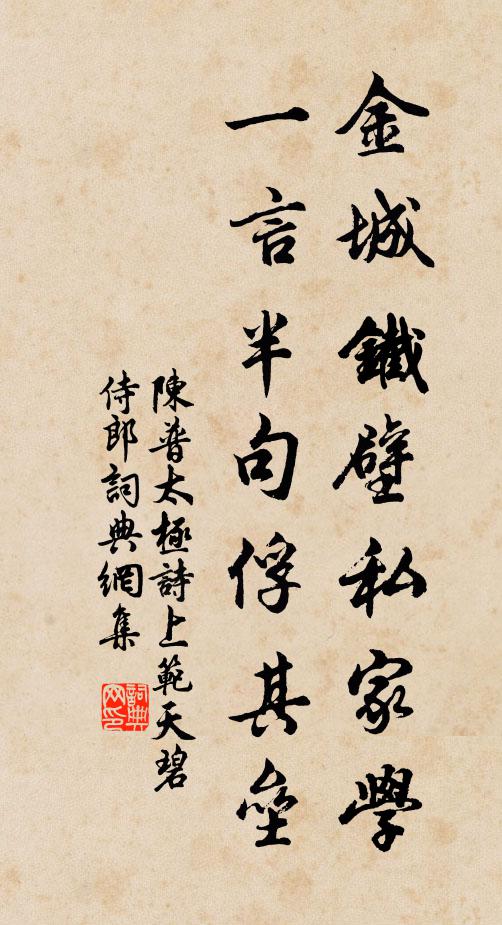 金城鐵壁私家學
一言半句俘其壘
陳普太極詩上範天碧
侍郎詞典網集
詞典网印